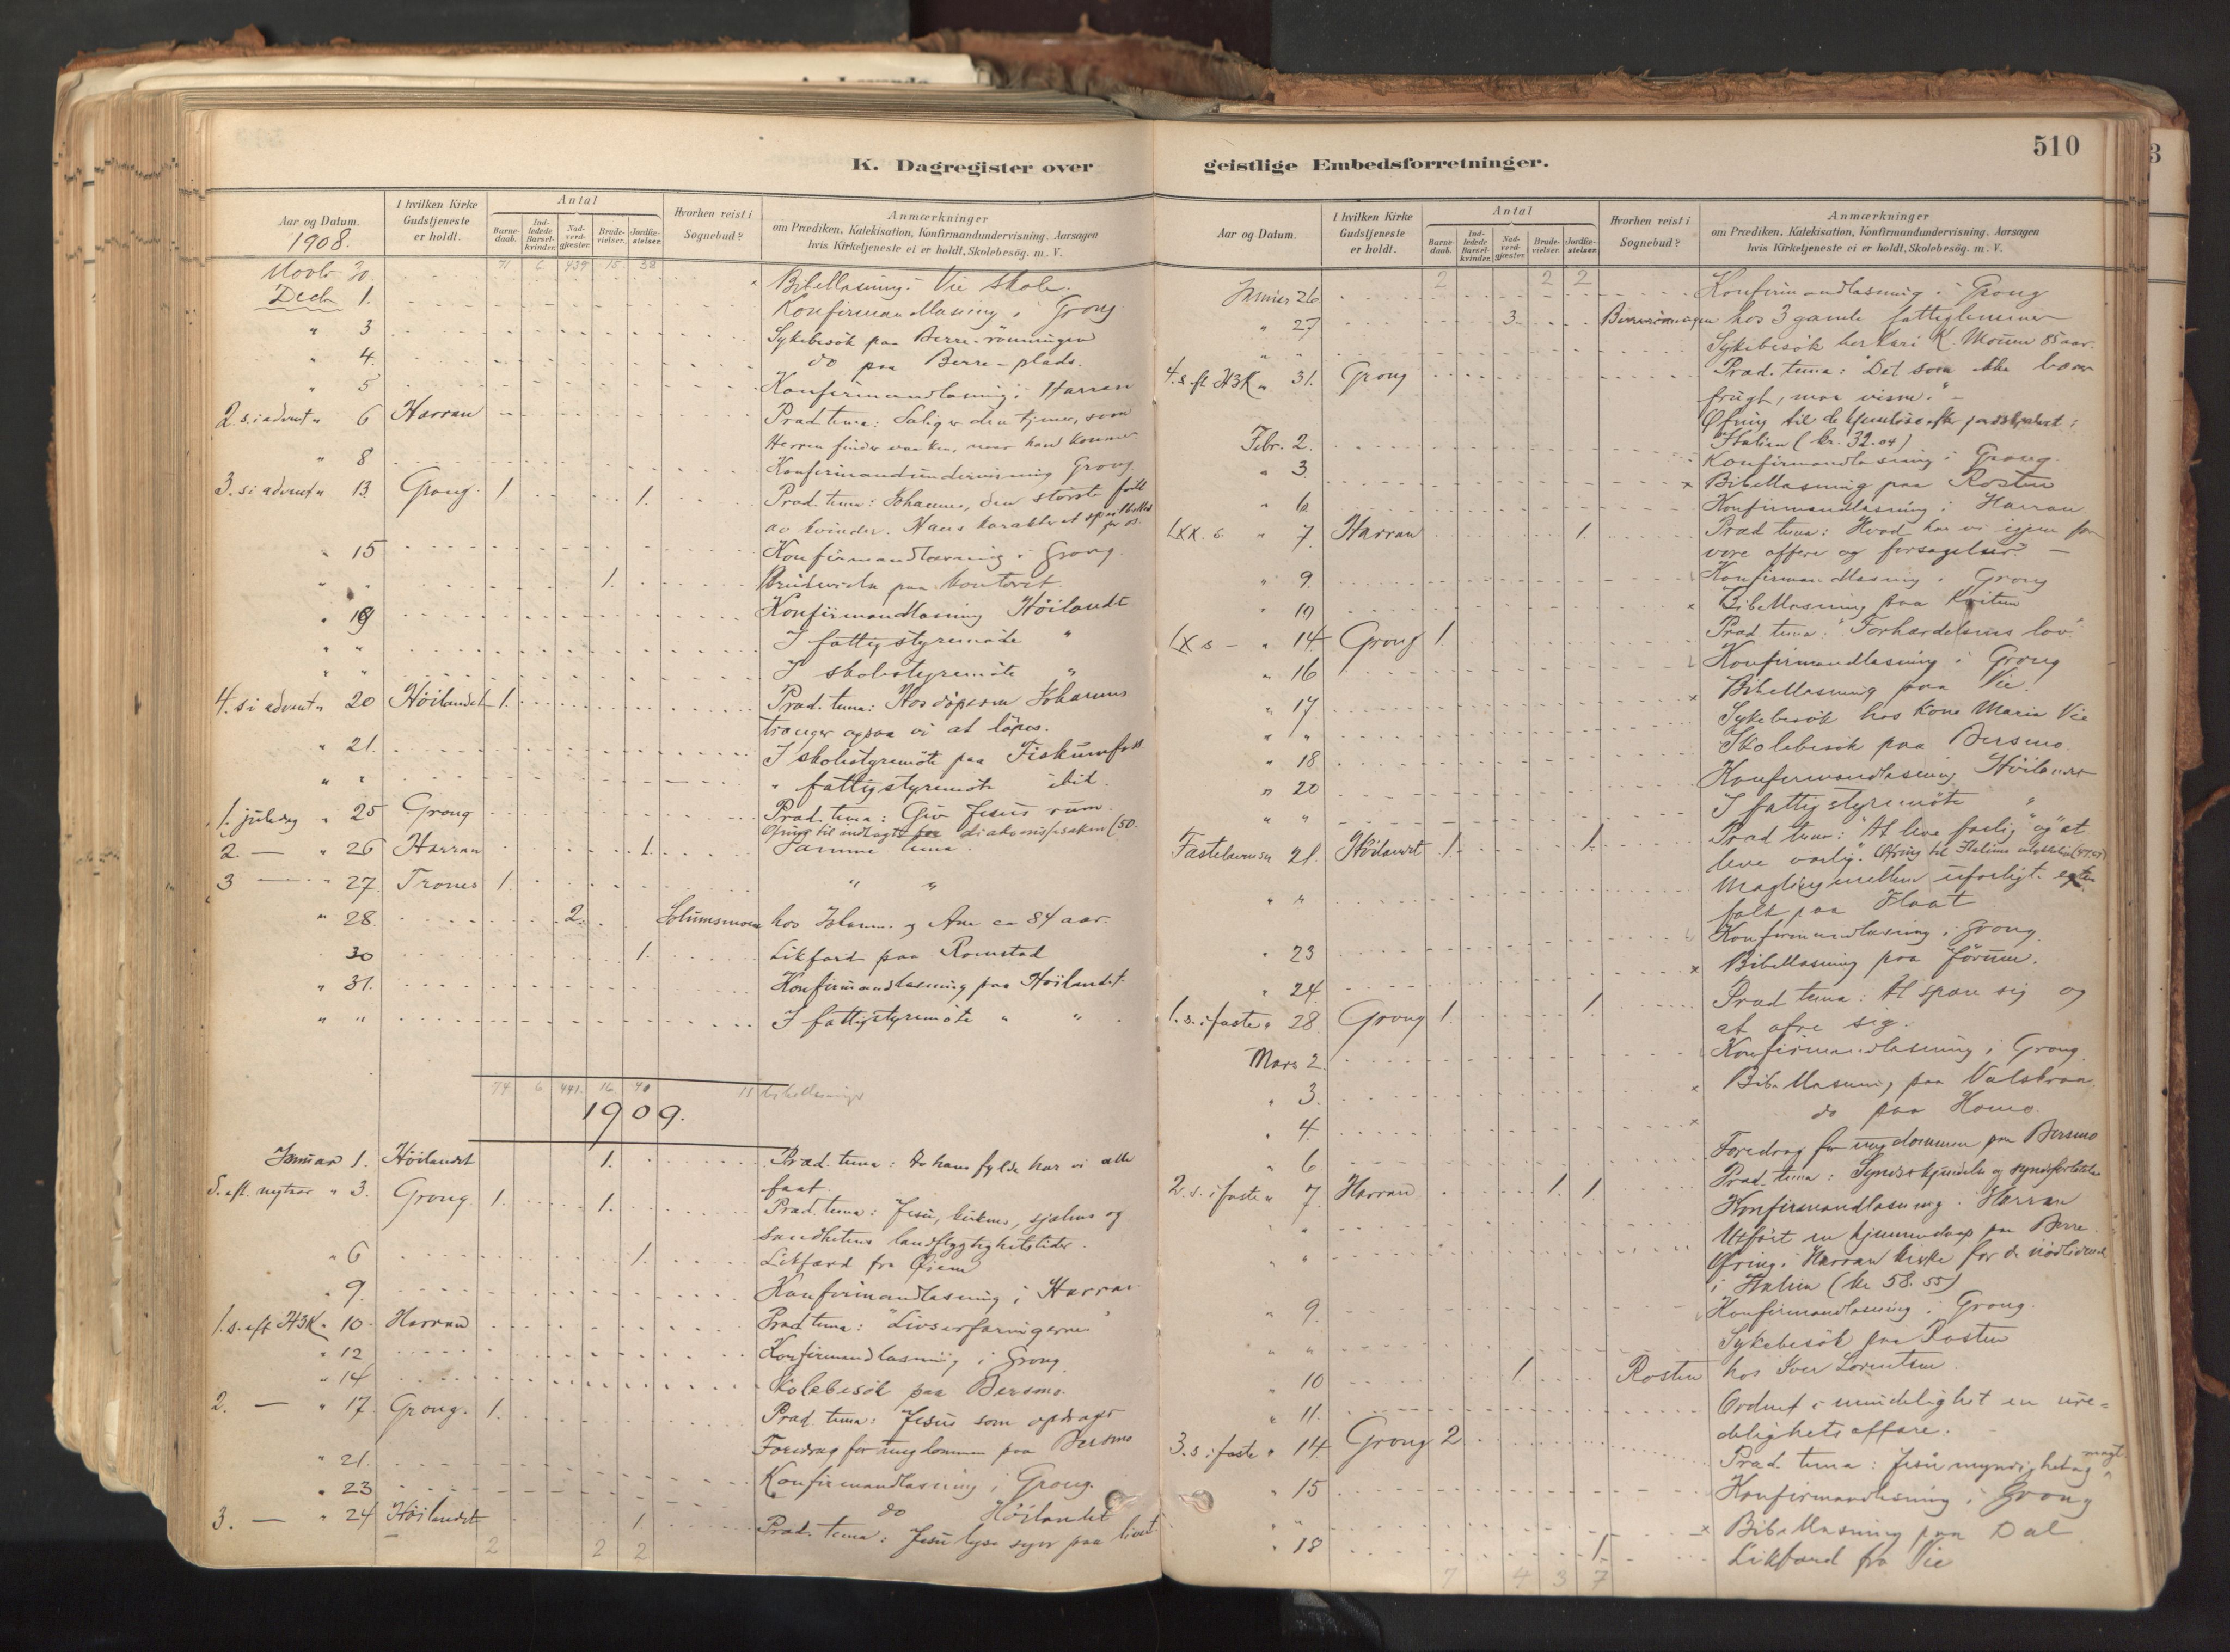 510
K. Dagregister over geistlige Embedsforretninger.
Aar og Datum. 1908.
I hvilken Kirke Gudstjeneste er holdt.
Antal
Barnedaab.
Indledede Barselkvinder.
Nadverdgjester.
Brudevielser.
Jordfæstelser.
Hvorhen reist i Sognebud?
Anmærkninger
om Prædiken, Katekisation, Konfirmandundervisning. Aarsagen
hvis Kirketjeneste ei er holdt, Skolebesøg. m. V.
Novbr 30. 71 6 439 15 38 Bibellæsning. Vie skole.
Decbr 1. Konfirmandlæsning i Grong
" 3 Sykebesök paa Berre-rönningen
" 4. do paa Berre-plads.
" 5 Konfirmandlæsning i Harran
2. s. i advent " 6 Harran Præd. tema: Salig er den tjener, som
Herren finder vaaken, naar han kommer
" 8 Konfirmandundervisning Grong.
3. s. i advent " 13. Grong. 1 1. Præd. tema: Johannes, den störste född
av kvinder. Hans karakter et speilbilled for os.
" 15 Konfirmandlæsning i Grong.
" " 1. Brudevielse paa kontoret.
" 19 Konfirmandlæsning Höilandet
" " I fattigstyremöte "
" " I skolestyremöte "
4. s. i advent " 20 Höilandet 1. Præd. tema: Hos döperen Johannes
trænger ogsaa vi at löpes.
" 21. I skolestyremöte paa Fiskumfoss
" " " fattigstyremöte ibid.
1. juledag " 25 Grong Præd. tema: Giv Jesus rum.
Ofring til indtægt for diakonissesaken (50.
2. — " 26 Harran 1. Samme tema.
3 — " 27. Trones 1. " "
" 28. 2. Solumsmoen hos Johannes og Ane ca 84 aar.
30 1. Likfærd paa Romstad
" 31. Konfirmandlæsning paa Höilandet.
" " I fattigstyremöte " "
74 6 441. 16 40 11 bibellæsninger
1909.
Januar 1. Höilandet 1. Præd. tema: Av hans fylde har vi alle
faat.
S. eft. nytaar " 3. Grong 1. 1. Præd. tema: Jesu, kirkens, sjælens og
Sandhetens landflygtighetstider.
" 6 1. Likfærd fra Öiem
" 9. Konfirmandlæsning i Harran
1. s. eft H3K " 10. Harran Præd tema: "Livserfaringerne"
" 12 Konfirmandlæsning i Grong.
" 14 Skolebesök paa Bersmo.
2. — " 17. Grong. 1. Præd. tema: Jesus som opdrager
" 21. Foredrag for ungdommen paa Bersmo
" 23 Konfirmandlæsning i Grong.
do Höilandet
3. — " 24 Höilandet 1 Præd. tema: Jesu lyse syn paa livet
2 2 2
Aar og Datum.
I hvilken Kirke Gudstjeneste er holdt.
Antal
Barnedaab.
Indledede Barselkvinder.
Nadverdgjester.
Brudevielser.
Jordfæstelser.
Hvorhen reist i Sognebud?
Anmærkninger
om Prædiken, Katekisation, Konfirmandundervisning. Aarsagen
hvis Kirketjeneste ei er holdt, Skolebesög. m. V.
2 2 2
Januar 26 Konfirmandlæsning i Grong
" 27 3. hos 3 gamle fattiglemmer
" " Sykebesök hos Kari K. Moum 85 aar.
4. s. eft H3K " 31. Grong Præd. tema: "Det som ikke bærer
frugt, maa visne."
Ofring til de hjemlöse efter jordskjælvet i
Italien (kr. 32.04)
Febr. 2. Konfirmandlæsning i Grong.
" 3. x Bibellæsning paa Rosten
" 6 Konfirmandlæsning i Harran
Lxx. s. " 7. Harran 1. Præd tema: Hvad har vi igjen for
vore offere og forsagelser? —
" 9. Konfirmandlæsning i Grong
" 10 x Bibellæsning paa Kvitum
Lx s — " 14 Grong 1. Præd. tema: "Forhærdelsens lov."
" 16 Konfirmandlæsning i Grong
" 17. x Bibellæsning paa Vie.
" " Sykebesök hos Kone Maria Vie
" 18 Skolebesök paa Bersmo.
" 20 Konfirmandlæsning Höilandet
" " I fattigstyremöte "
Fastelavnss 21. Höilandet 1. 1. Præd tema: "At leve farlig" og "at
leve varlig". Ofring til Italiens
" " Mægling mellem uforligt. egte
folk paa Flaat
" 23 Konfirmandlæsning i Grong.
" 24. x Bibellæsning paa Jörum.
1. s. i faste " 28. Grong 1. 1. Præd tema: At spare sig og
at ofre sig.
Mars 2. Konfirmandlæsning i Grong.
" 3. x Bibellæsning paa Valskraa.
" 4. x do paa Homo.
" 6 Foredrag for ungdommen paa Bersmo
2. s. i faste " 7. Harran 1. 1. Præd. tema: Syndserkjendelse og syndsforlatelse
" Konfirmandlæsning i Harran
" " Utfört en hjemmedaap paa Berre.
Ofring i Harran kirke for de nödlidende
i Italien (kr 58.55)
" 9. Konfirmandlæsning i Grong.
" " Sykebesök paa Rosten
" 10 1. Rosten hos Iver Lorentsen
" 11. Ordnet i mindelighet en ure-
delighetsaffære.
3. s. i faste " 14. Grong 2 Præd. tema: Jesu myndighet og magt.
" 15 Konfirmandlæsning i Grong
" x Bibellæsning paa Dal
" 18 1. Likfærd fra Vie
7 4 3 7